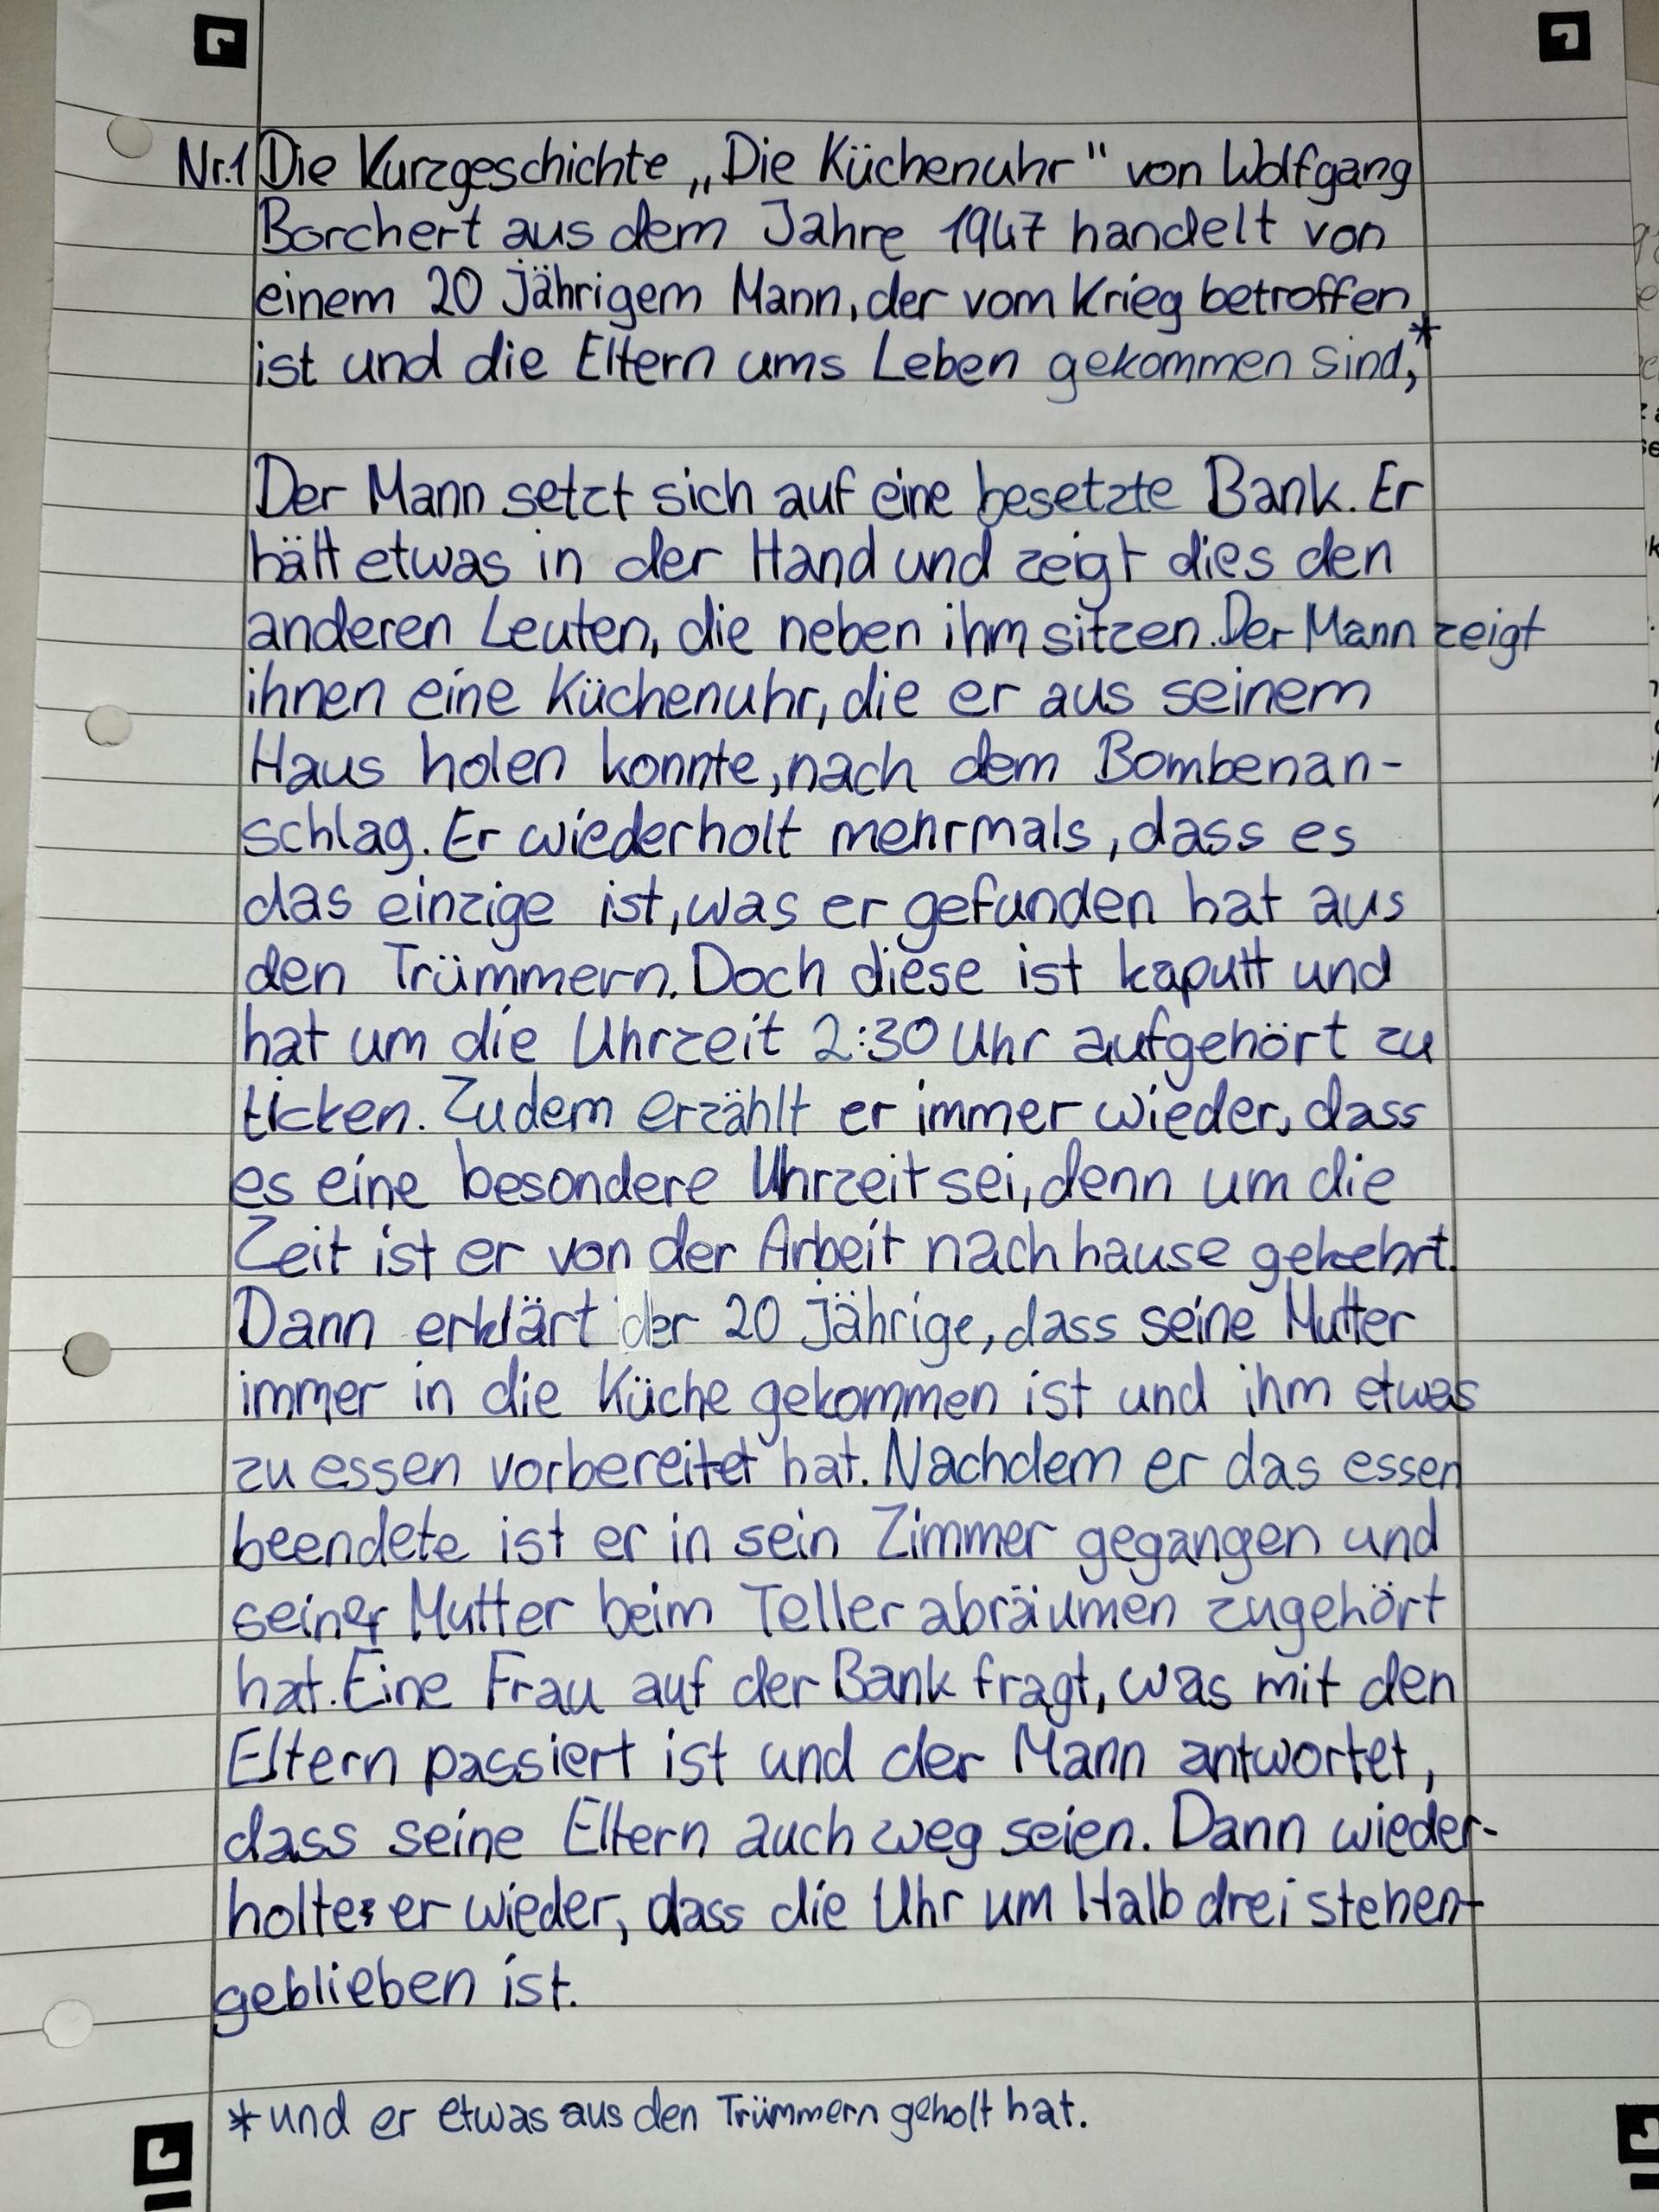 Nr.1 Die Kurzgeschichte „Die Küchenuhr" von Wolfgang
Borchert aus dem Jahre 1947 handelt von
einem 20 Jährigem Mann, der vom Krieg betroffen
ist und die Eltern ums Leben gekommen sind,*
Der Mann setzt sich auf eine besetzte Bank. Er
hält etwas in der Hand und zeigt dies den
anderen Leuten, die neben ihm sitzen. Der Mann zeigt
ihnen eine Küchenuhr, die er aus seinem
Haus holen konnte, nach dem Bombenan-
schlag. Er wiederholt mehrmals, dass es
das einzige ist, was er gefunden hat aus
den Trümmern. Doch diese ist kaputt und
hat um die Uhrzeit 2:30 Uhr aufgehört zu
ticken. Zudem erzählt er immer wieder, dass
es eine besondere Uhrzeit sei, denn um die
Zeit ist er von der Arbeit nach hause gekehrt.
Dann erklärt der 20 Jährige, dass seine Mutter
immer in die Küche gekommen ist und ihm etwas
zu essen vorbereitet hat. Nachdem er das essen
beendete ist er in sein Zimmer gegangen und
seiner Mutter beim Teller abräumen zugehört
hat. Eine Frau auf der Bank fragt, was mit den
Eltern passiert ist und der Mann antwortet,
dass seine Eltern auch weg seien. Dann wieder-
holte er wieder, dass die Uhr um Halb drei stehen-
geblieben ist.
* und er etwas aus den Trümmern geholt hat.